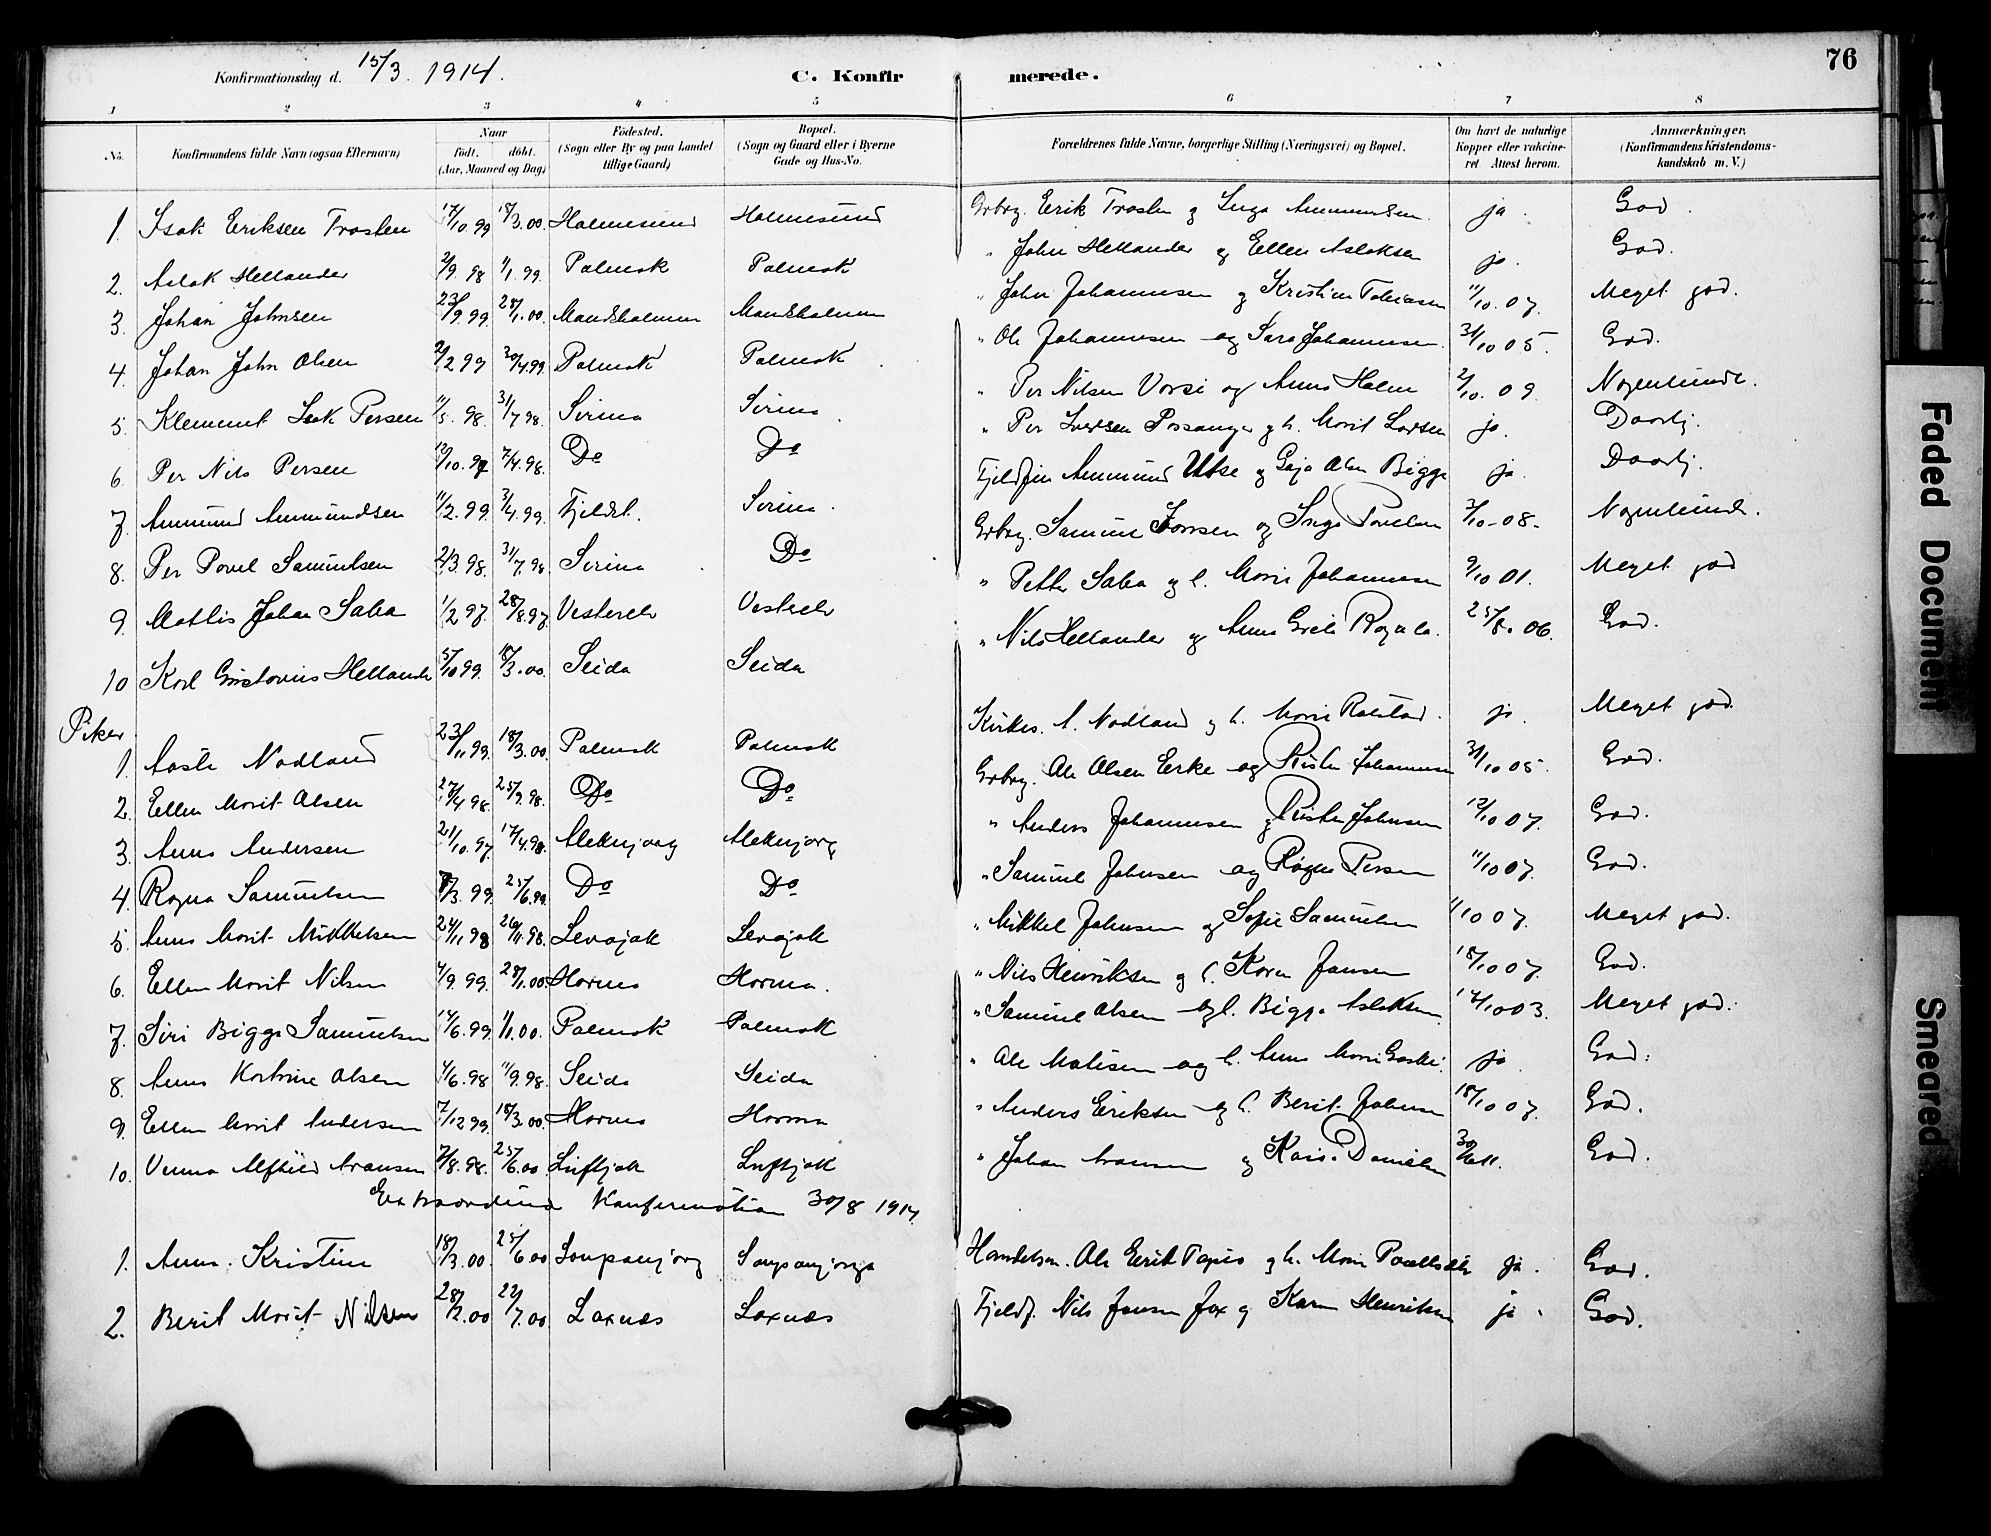 76
Konfirmationsdag d. 15/3. 1914.
C. Konfir merede.
1 2 3 4 5 6 7 8
No. Konfirmandens fulde Navn (ogsaa Efternavn) Naar födt. döbt. (Aar, Maaned og Dag) Födested. (Sogn eller By og paa Landet tillige Gaard) Bopæl. (Sogn og Gaard eller i Byerne Gade og Hus-No. Forældrenes fulde Navne, borgerlige Stilling (Næringsvei) og Bopæl. Om havt de naturlige Kopper eller vakcineret Attest herom. Anmærkninger. (Konfirmandens Kristendomskundskab m. V.)
1. Isak Eriksen Trosten 17/10.99 18/3.00. Holmesund Holmesund Grbrg. Erik Trosten og Inga Ammundsen. ja. God.
2. Aslak Hellander 2/9.98 1/1.99. Polmak Polmak " John Hellander og Ellen Aslaksen ja. God.
3. Johan Johnsen 23/9.99 28/1.00. Mandsholmen Mandsholmen " John Johannesen og Kristine Tobiasen 11/10.07. Meget god.
4. Johan John Olsen 2/2 99 30/4.99. Polmak Polmak " Ole Johannesen og Sara Johannesen. 31/10 05. God.
5. Klemmet Isak Persen 11/5.98. 31/7.98. Sirma Sirma " Per Nilsen Vorsi og Anna Holm 2/10.09. Nogenlunde.
6. Per Nils Persen 12/10.97 7/4.98. Do Do " Per Iversen Possanger og h. Marit Larsen ja. Daarlig.
7. Ammund Ammundsen 11/2.99. 3/4.99. Fjeldet. Sirma. Fjeldfin Ammund Utse og Gaja Olsen Bigga ja. Daarlig.
8. Per Povel Samuelsen 2/3.98. 31/7.98. Sirma Do Grbrg. Samuel Jonsen og Inga Povelsen 3/10-08. Nogenlunde.
9. Mathis Johan Saba 1/2 97. 28/8.97. Vesterelv Vesterelv " Petter Saba og h. Marie Johannesen 9/10 01. Meget god
10 Karl Gustavius Hellander 5/10 99. 18/3.00. Seida Seida " Nils Hellander og Anna Grete 25/8.06. God.
Piker
1. Aasta Nodland 23/11 99. 18/3.00. Polmak Polmak Kirkes. A. Nodland og h. Marie ja. Meget god.
2. Ellen Marit Olsen 27/4.98. 25/9.98. Do Do Grbrg. Ole Olsen Erke og Risten Johannesen 31/10 05. God.
3. Anna Andersen 21/10.97. 17/4.98. Aleknjarg Aleknjarg " Anders Johannesen og Risten Johnsen 12/10 07. God.
4. Ragna Samuelsen 7/3.99. 25/6.99. Do Do " Samuel Johnsen og Ragna Persen 11/10 07. God.
5. Anna Marit Mikkelsen 24/11.98 26/11.98. Levajok Levajok " Mikkel Johnsen og Sofie Samuelsen 11/10 07. Meget god.
6. Ellen Marit Nilsen 4/9 99. 28/1.00. Horma Horma. " Nils Henriksen og h. Karen Jansen 18/10 07. God.
7. Siri Bigga Samuelsen 14/6.99. 1/1.00. Polmak Polmak " Samuel Olsen og h. Bigga Aslaksen. 17/10 03. Meget god.
8. Anna Katrine Olsen 4/6.98 11/9.98. Seida Seida " Ole Matisen og h. Anna Marie ja God.
9. Ellen Marit Andersen 7/12 99. 18/3.00. Horma Horma " Anders Eriksen og h. Berit Johnsen 18/10 07. God.
10. Venna Alfhild Aransen 7/8.98. 25/6.00 Luftjok Luftjok " Johan Aransen og Kaisa Danielsen 30/6 11. God.
Extraordinær Konfirmation 30/8 1914.
1. Anna Kristine 18/3.00. 25/6.00 Soupanjarg Soupanjarga Handelsm. Ole Erik Tapio og h. Marie ja. God.
2. Berit Marit Nilsen 28/2.00 22/7.00 Laxnæs Laxnæs Fjeldf. Nils Jansen og Karen Henriksen ja. God.
Faded Document
Smeared